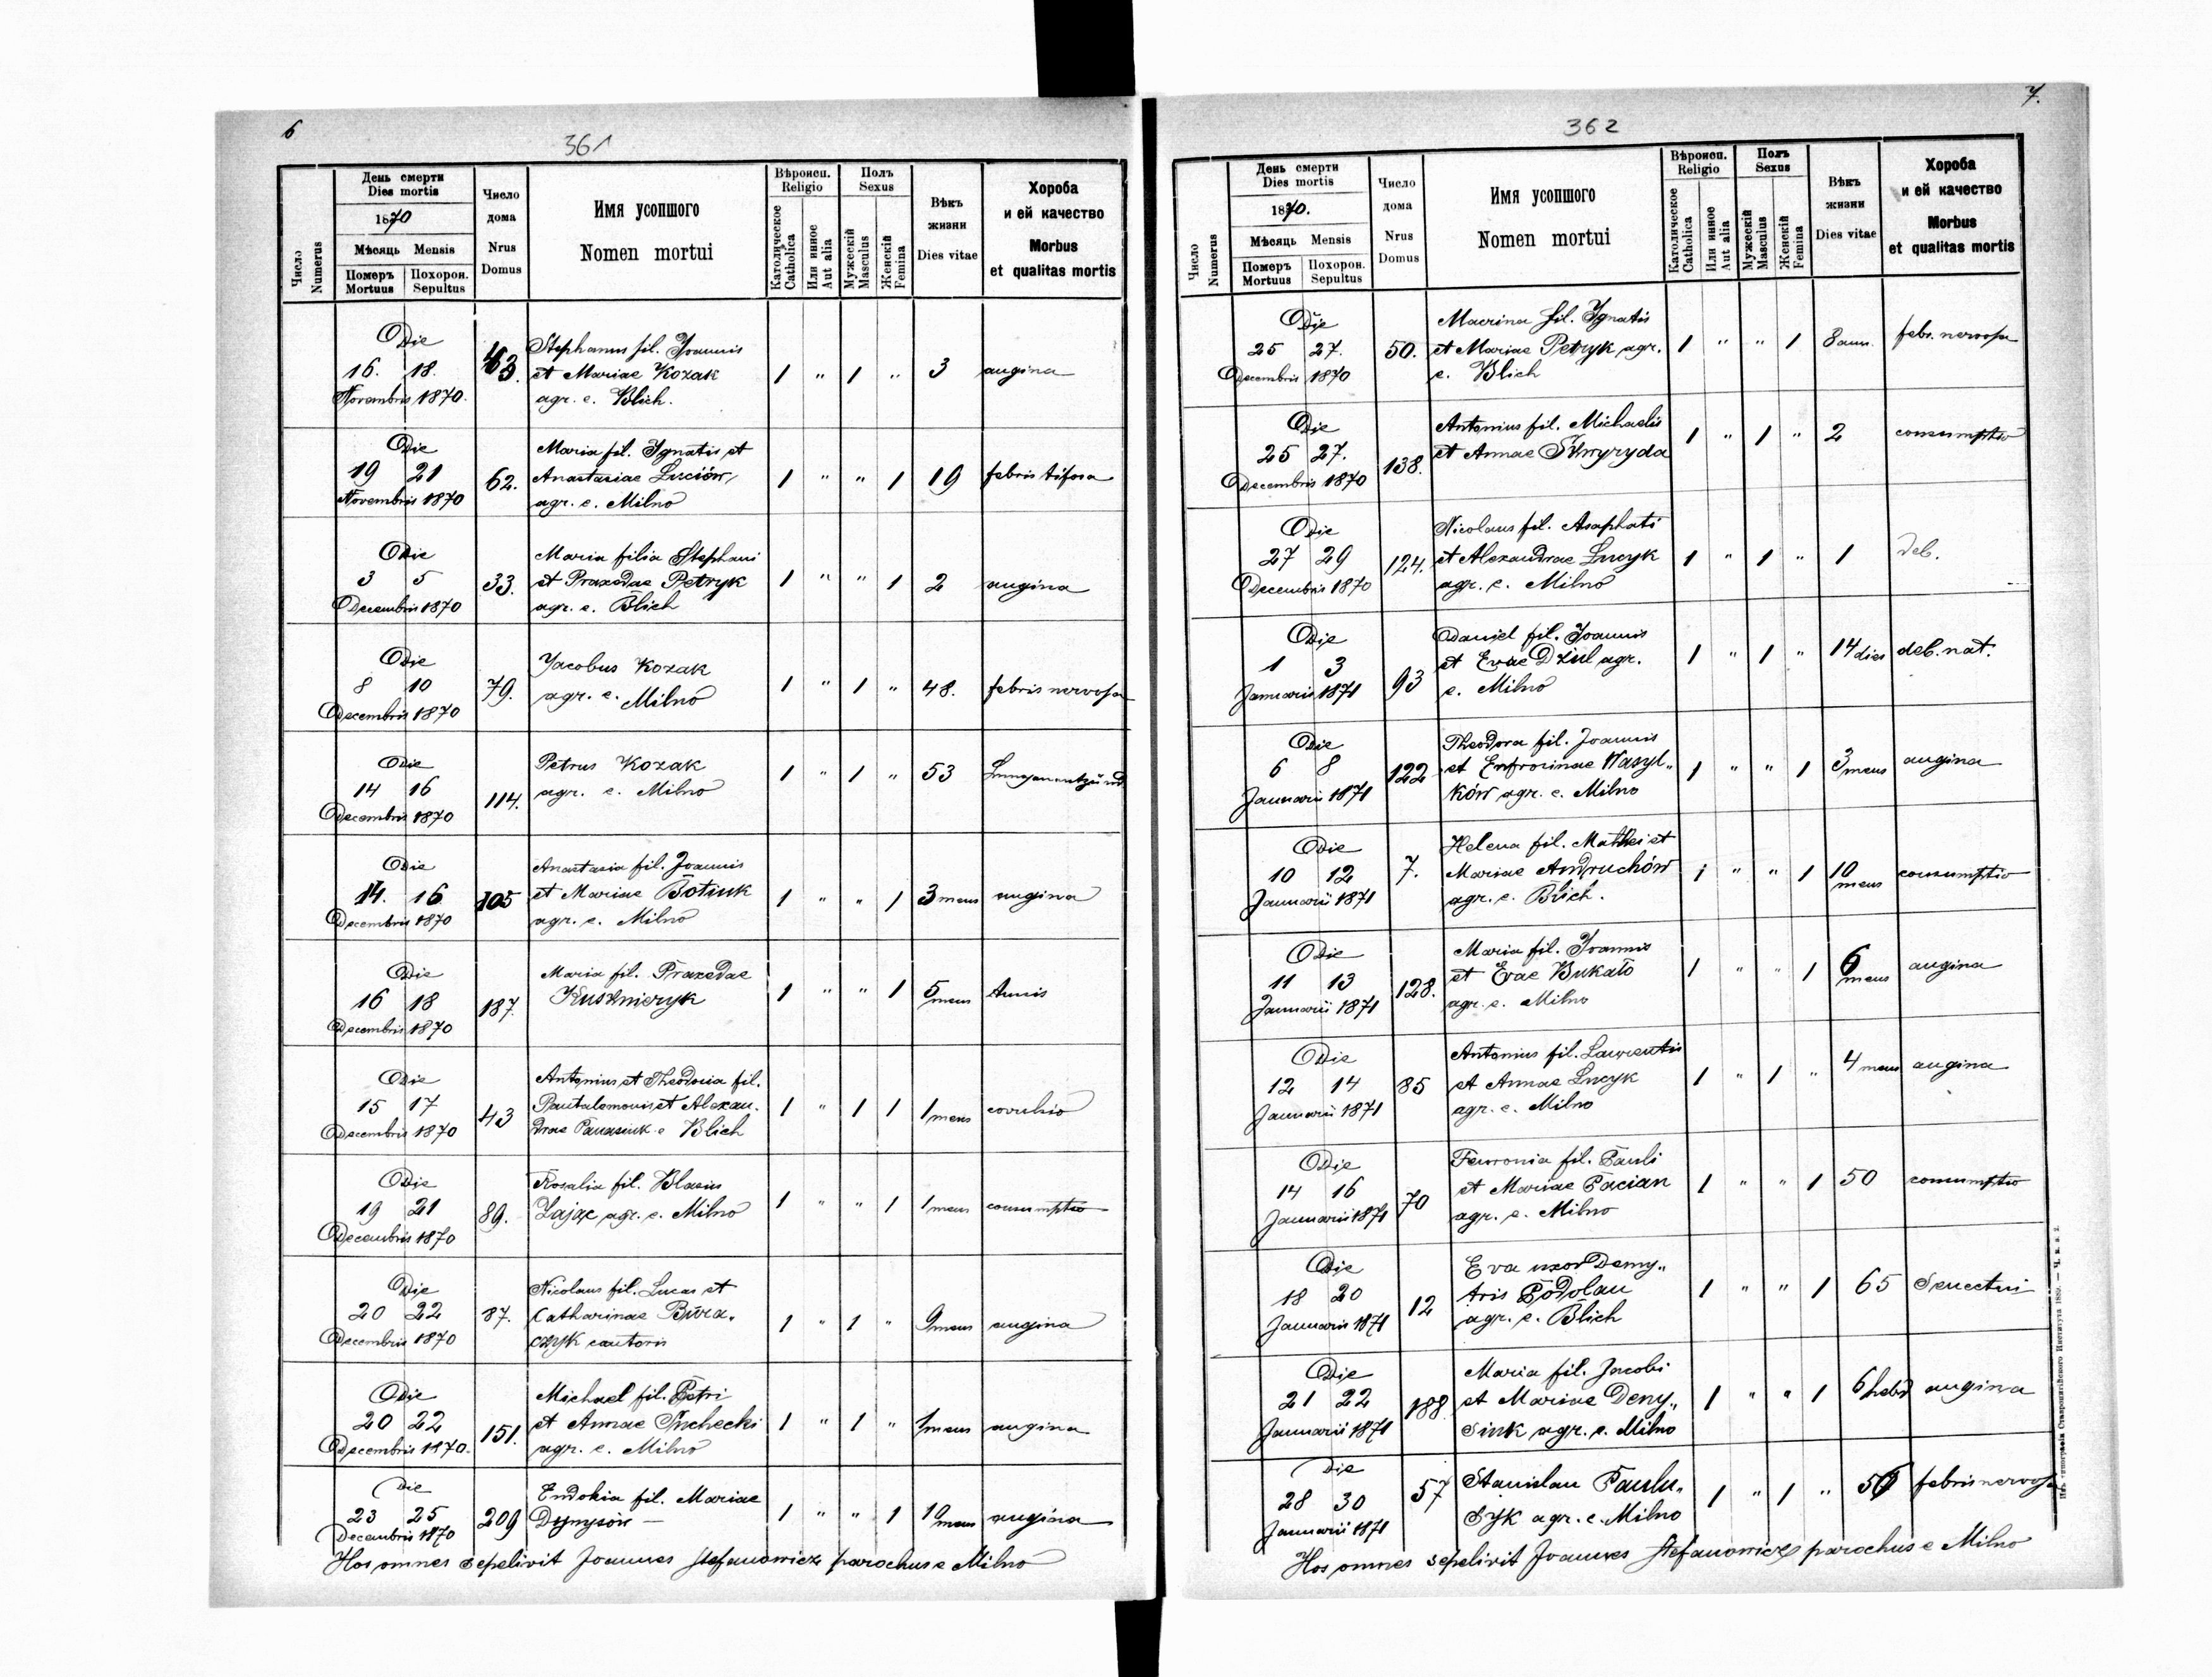 6
361
Число Numerus
День смерти
Dies mortis
1870
Мѣсяць Mensis
Померъ Похорон.
Mortuus Sepultus
Число
дома
Nrus
Domus
Имя усопшого
Nomen mortui
Вѣроисп.
Religio
Католическое Catholica
Или инное Aut alia
Полъ
Sexus
Мужескій Masculus
Женскій Femina
Вѣкъ
жизни
Dies vitae
Хороба
и ей качество
Morbus
et qualitas mortis
Die
Stephanus fil. Joannis
16. 18. 43. et Mariae Kozak 1 " 1 " 3 angina
Novembris 1870. agr. e. Blich.
Die
Maria fil. Ignatis et
19 21 62. Anastasiae Luciów, 1 " " 1 19 febris tifosa
Novembris 1870 agr. e. Milno
Die
Maria filia Stephani
3 5 33. et Praxedae Petryk 1 " " 1 2 angina
Decembris 1870 agr. e. Blich
Die
Jacobus Kozak
8 10 79. agr. e. Milno 1 " 1 " 48. febris nervosa
Decembris 1870
Die
Petrus Kozak
14 16 114. agr. e. Milno 1 " 1 " 53
Decembris 1870
Die
Anastasia fil. Joannis
14. 16 105 et Mariae Botiuk 1 " " 1 3 mens angina
Decembris 1870 agr. e. Milno
Die
Maria fil. Praxedae
16 18 187. Kusznieryk 1 " " 1 5 mens tussis
Decembris 1870
Die
Antonius et Theodosia fil.
15 17 43 Pantalemonis et Alexan- 1 " 1 1 1 mens
Decembris 1870 drae Panasiuk e Blich
Die
Rosalia fil. Blasius
19 21 89. Zając agr. e. Milno 1 " " 1 1 mens consumptio
Decembris 1870
Die
Nicolaus fil. Lucas et
20 22 87. Catharinae Bura- 1 " 1 " 9 mens angina
Decembris 1870 czyk cantoris
Die
Michael fil. Petri
20 22 151. et Annae Suchecki 1 " 1 " 1 mens angina
Decembris 1870. agr. e. Milno
Die
Eudokia fil. Mariae
23 25 209 Dynysów — 1 " " 1 10 mens angina
Decembris 1870
Hos omnes sepelivit Joannes Stefanowicz parochus e Milno
7.
362
Число Numerus
День смерти
Dies mortis
1870.
Мѣсяць Mensis
Померъ Похорон.
Mortuus Sepultus
Число
дома
Nrus
Domus
Имя усопшого
Nomen mortui
Вѣроисп.
Religio
Католическое Catholica
Или инное Aut alia
Полъ
Sexus
Мужескій Masculus
Женскій Femina
Вѣкъ
жизни
Dies vitae
Хороба
и ей качество
Morbus
et qualitas mortis
Die
Macrina fil. Ignatis
25 27. 50. et Mariae Petryk agr. 1 " " 1 8 ann. febr. nervosa
Decembris 1870 e. Blich
Die
Antonius fil. Michaelis
25 27. 138. et Annae Szwyryda 1 " 1 " 2 consumptio
Decembris 1870
Die
Nicolaus fil. Asaphati
27 29 124. et Alexandrae Lucyk 1 " 1 " 1 deb.
Decembris 1870 agr. e. Milno
Die
Daniel fil. Joannis
1 3 93 et Evae Dziul agr. 1 " 1 " 14 dies deb. nat.
Januaris 1871 e. Milno
Die
Theodora fil. Joannis
6 8 122 et Enfrozinae Wasyl„ 1 " " 1 3 mens angina
Januarii 1871 ków agr. e. Milno
Die
Helena fil. Mathei et
10 12 7. Mariae Andruchów 1 " " 1 10 mens consumptio
Januarii 1871 agr. e. Blich.
Die
Maria fil. Joannis
11 13 128. et Evae Bukało 1 " " 1 6 mens angina
Januarii 1871 agr. e. Milno
Die
Antonius fil. Laurentis
12 14 85 et Annae Lucyk 1 " 1 " 4 mens angina
Januarii 1871 agr. e. Milno
Die
Fewronia fil. Pauli
14 16 70 et Mariae Pacian 1 " " 1 50 consumptio
Januarii 1871 agr. e. Milno
Die
Eva uxor Demy„
18 20 12 tris Podolan 1 " " 1 65 Senectus
Januaris 1871 agr. e. Blich
Die
Maria fil. Jacobi
21 22 188 et Mariae Deny„ 1 " " 1 6 hebd angina
Januarii 1871 siuk agr. e. Milno
Die
28 30 57 Stanislau Paulu„ 1 " 1 " febris nervosa
Januarii 1871 syk agr. e. Milno
Hos omnes sepelivit Joannes Stefanowicz parochus e Milno